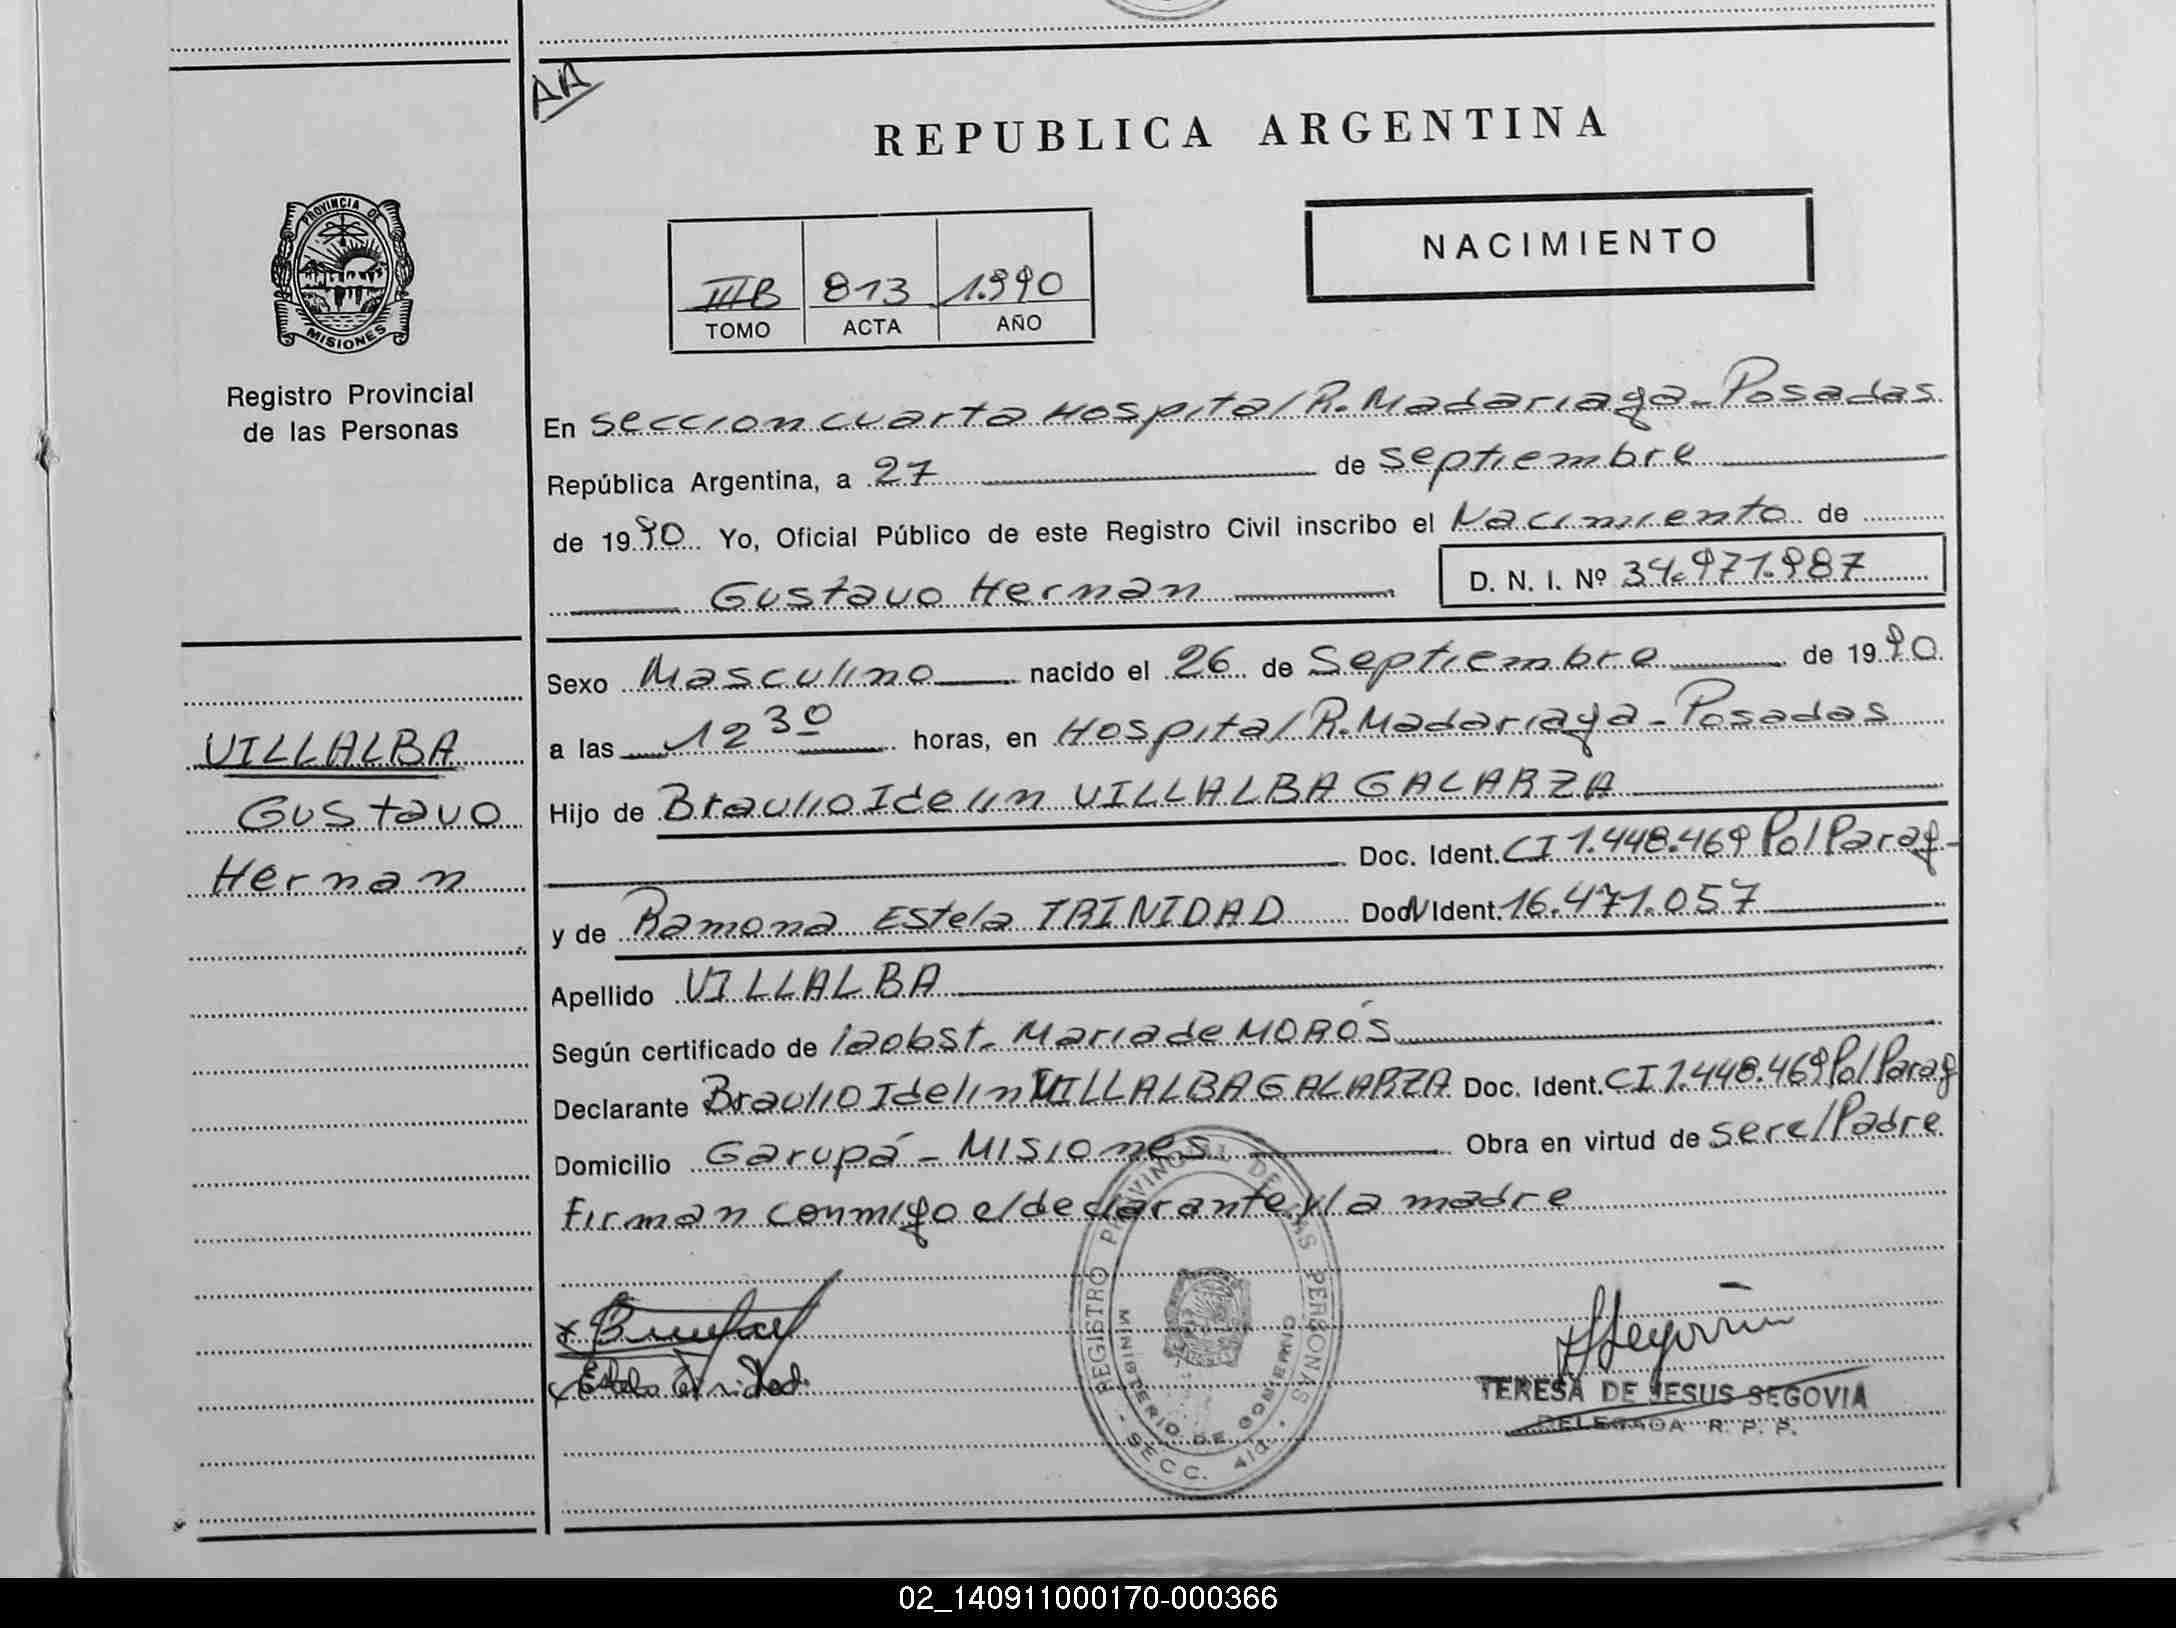 AA
REPUBLICA ARGENTINA
PROVINCIA DE
MISIONES
Registro Provincial
de las Personas
IIIB 813 1.990
TOMO ACTA AÑO
NACIMIENTO
En seccion cuarta Hospital R. Madariaga - Posadas
República Argentina, a 27 de septiembre
de 1990 Yo, Oficial Público de este Registro Civil inscribo el Nacimiento de
Gustavo Hernan D. N. I. Nº 34.971.987
VILLALBA
Gustavo
Hernan
Sexo Masculino nacido el 26 de Septiembre de 1990
a las 12 30 horas, en Hospital R. Madariaga - Posadas
Hijo de Braulio Idelin VILLALBA GALARZA
Doc. Ident. CI 1.448.469 Pol Parag-
y de Ramona Estela TRINIDAD Doc. Ident. 16.471.057
Apellido VILLALBA
Según certificado de la obst. Maria de MORÓS
Declarante Braulio Idelin VILLALBA GALARZA Doc. Ident. CI 1.448.469 Pol Parag
Domicilio Garupá - Misiones Obra en virtud de ser el Padre
Firman conmigo el declarante y la madre
REGISTRO PROVINCIAL DE LAS PERSONAS
MINISTERIO DE GOBIERNO
- SECC. 4ta. -
x
x Estela Trinidad
TERESA DE JESUS SEGOVIA
DELEGADA R. P. P.
02_140911000170-000366